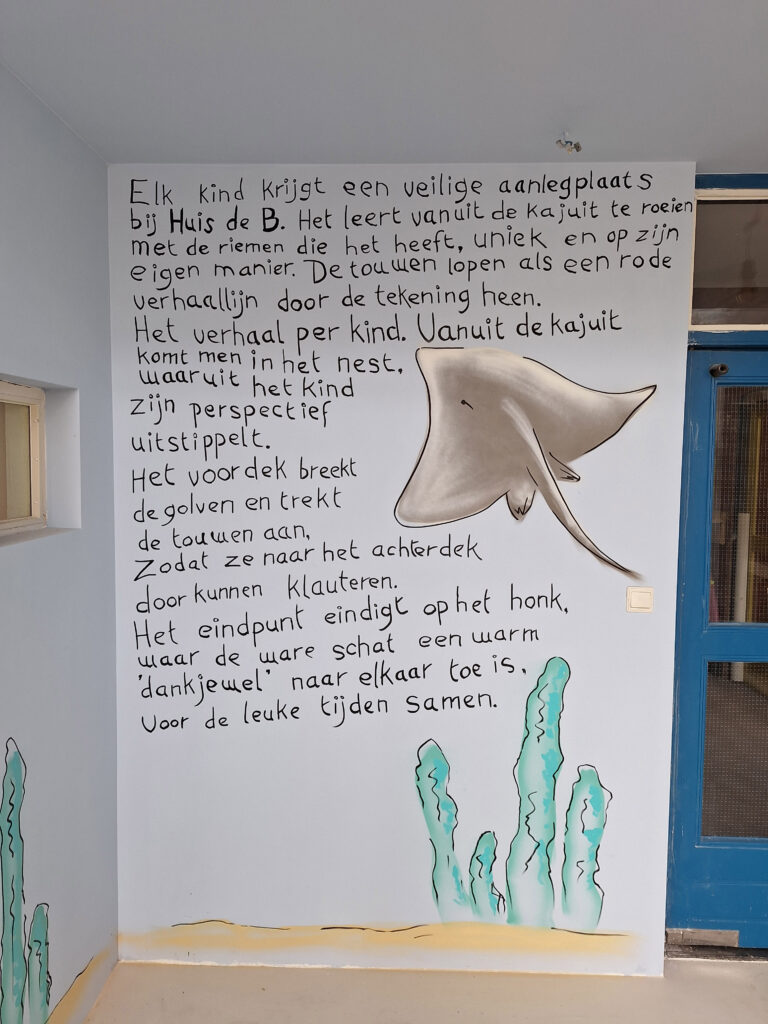 Elk kind krijgt een veilige aanlegplaats
bij Huis de B. Het leert vanuit de kajuit te roeien
met de riemen die het heeft, uniek en op zijn
eigen manier. De touwen lopen als een rode
verhaallijn door de tekening heen.
Het verhaal per kind. Vanuit de kajuit
komt men in het nest,
waaruit het kind
zijn perspectief
uitstippelt.
Het voordek breekt
de golven en trekt
de touwen aan,
Zodat ze naar het achterdek
door kunnen klauteren.
Het eindpunt eindigt op het honk,
waar de ware schat een warm
'dankjewel' naar elkaar toe is,
voor de leuke tijden samen.